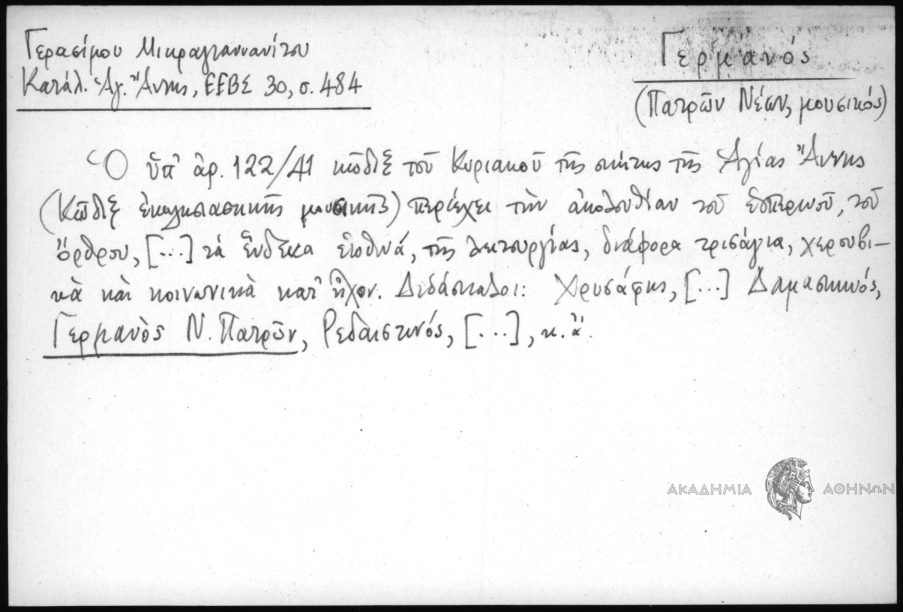 Γερασίμου Μικραγιαννανίτου
Κατάλ. Ἁγ. Ἄννης, ΕΕΒΣ 30, σ. 484
Γερμανός
(Πατρῶν Νέων, μουσικός)
Ὁ ὑπ' ἀρ. 122/41 κῶδιξ τοῦ Κυριακοῦ τῆς σκήτης τῆς Ἁγίας Ἄννης
(Κῶδιξ ἐκκλησιαστικῆς μουσικῆς) περιέχει τὴν ἀκολουθίαν τοῦ ἑσπερινοῦ, τοῦ
ὄρθρου, [...] τὰ ἕνδεκα ἑωθινά, τῆς λειτουργίας, διάφορα τρισάγια, χερουβι-
κὰ καὶ κοινωνικὰ κατ' ἦχον. Διδάσκαλοι: Χρυσάφης, [...] Δαμασκηνός,
Γερμανὸς Ν. Πατρῶν, Ῥεδαιστινός, [...], κ.ἄ.
ΑΚΑΔΗΜΙΑ ΑΘΗΝΩΝ